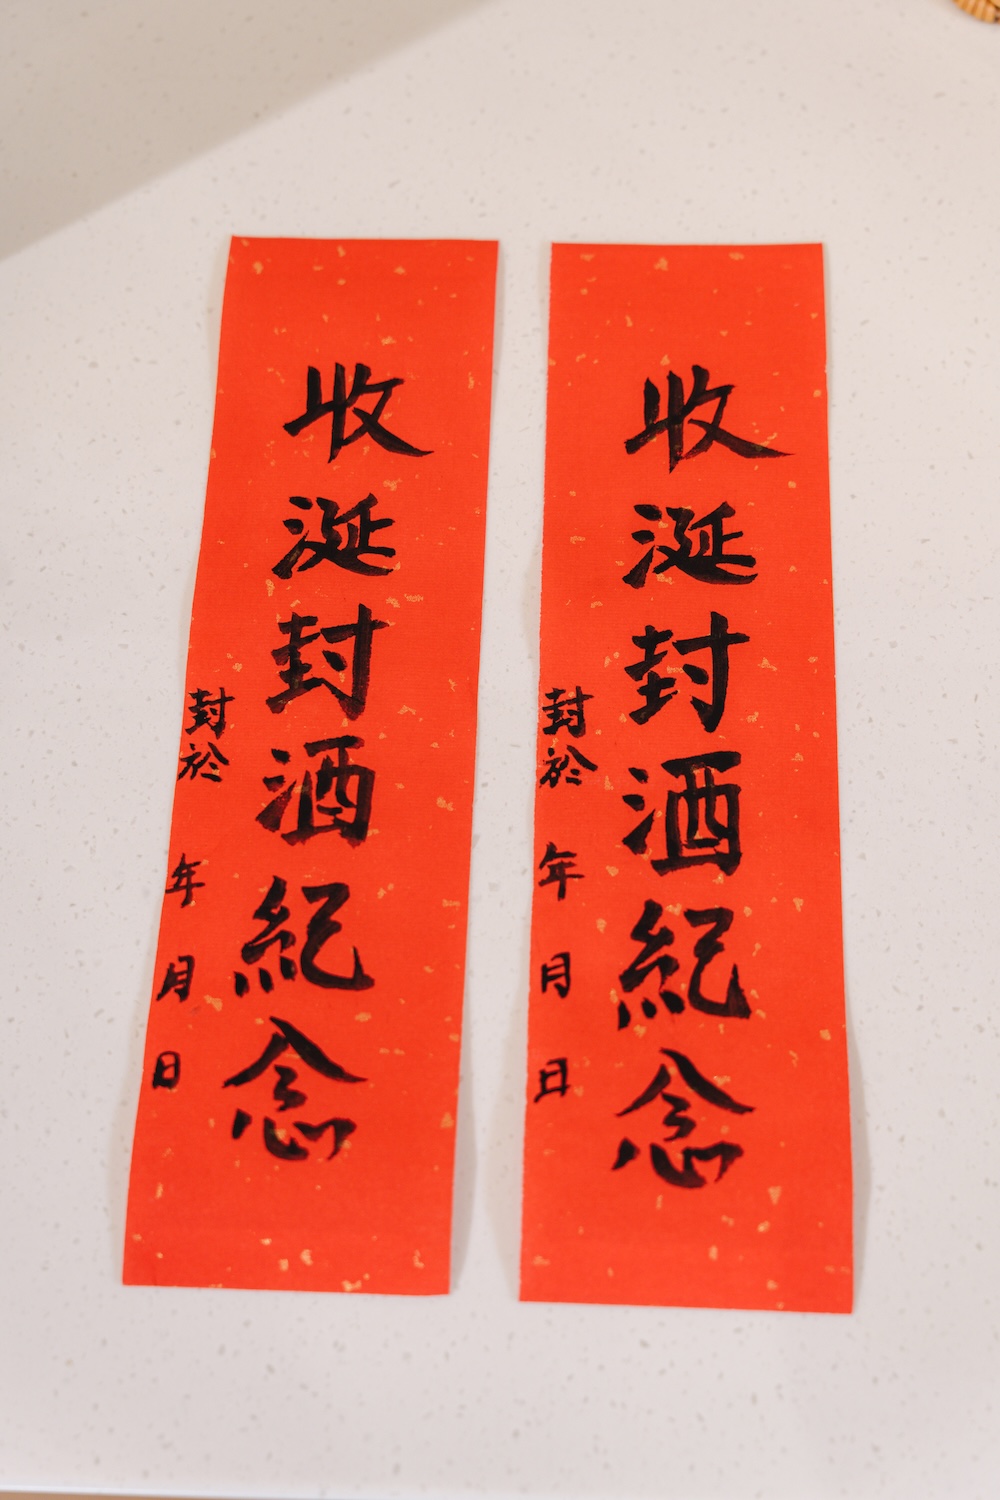 收涎封酒紀念
封於 年 月 日
收涎封酒紀念
封於 年 月 日